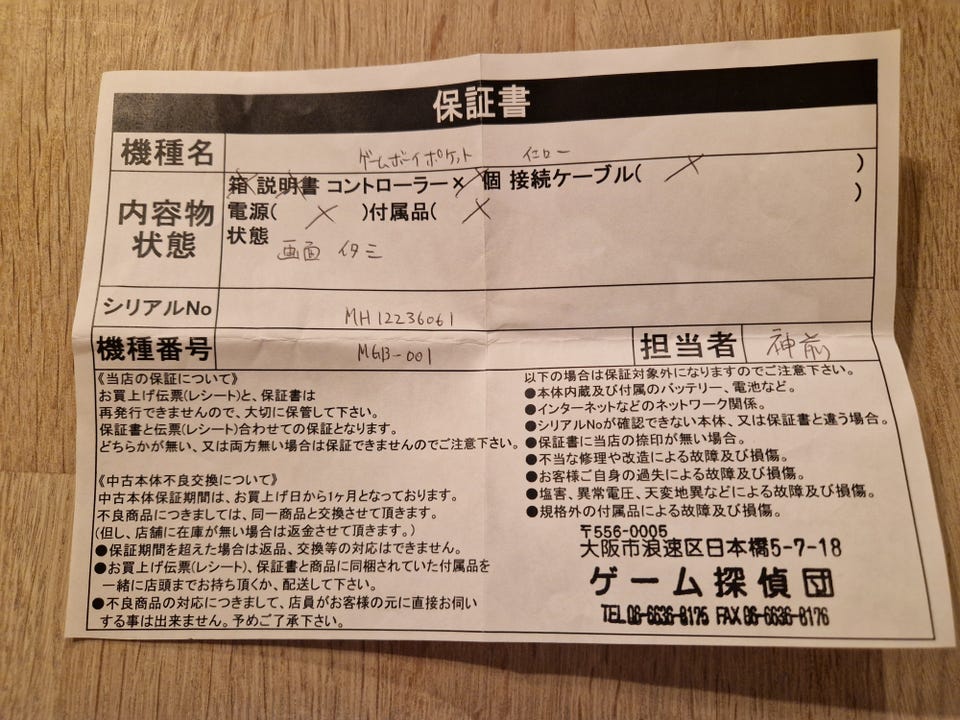 保証書
機種名 ゲームボーイポケット イロー
内容物 状態 箱 説明書 コントローラー× 個 接続ケーブル( × )
電源( × )付属品( × )
状態 画面 イタミ
シリアルNo MH12236061
機種番号 MGB-001 担当者 神前
《当店の保証について》
お買上げ伝票(レシート)と、保証書は
再発行できませんので、大切に保管して下さい。
保証書と伝票(レシート)合わせての保証となります。
どちらかが無い、又は両方無い場合は保証できませんのでご注意下さい。
《中古本体不良交換について》
中古本体保証期間は、お買上げ日から1ヶ月となっております。
不良商品につきましては、同一商品と交換させて頂きます。
(但し、店舗に在庫が無い場合は返金させて頂きます。)
●保証期間を超えた場合は返品、交換等の対応はできません。
●お買上げ伝票(レシート)、保証書と商品に同梱されていた付属品を
一緒に店頭までお持ち頂くか、配送して下さい。
●不良商品の対応につきまして、店員がお客様の元に直接お伺い
する事は出来ません。予めご了承下さい。
以下の場合は保証対象外になりますのでご注意下さい。
●本体内蔵及び付属のバッテリー、電池など。
●インターネットなどのネットワーク関係。
●シリアルNoが確認できない本体、又は保証書と違う場合。
●保証書に当店の捺印が無い場合。
●不当な修理や改造による故障及び損傷。
●お客様ご自身の過失による故障及び損傷。
●塩害、異常電圧、天変地異などによる故障及び損傷。
●規格外の付属品による故障及び損傷。
〒556-0005
大阪市浪速区日本橋5-7-18
ゲーム探偵団
TEL06-6636-8175 FAX06-6636-8176